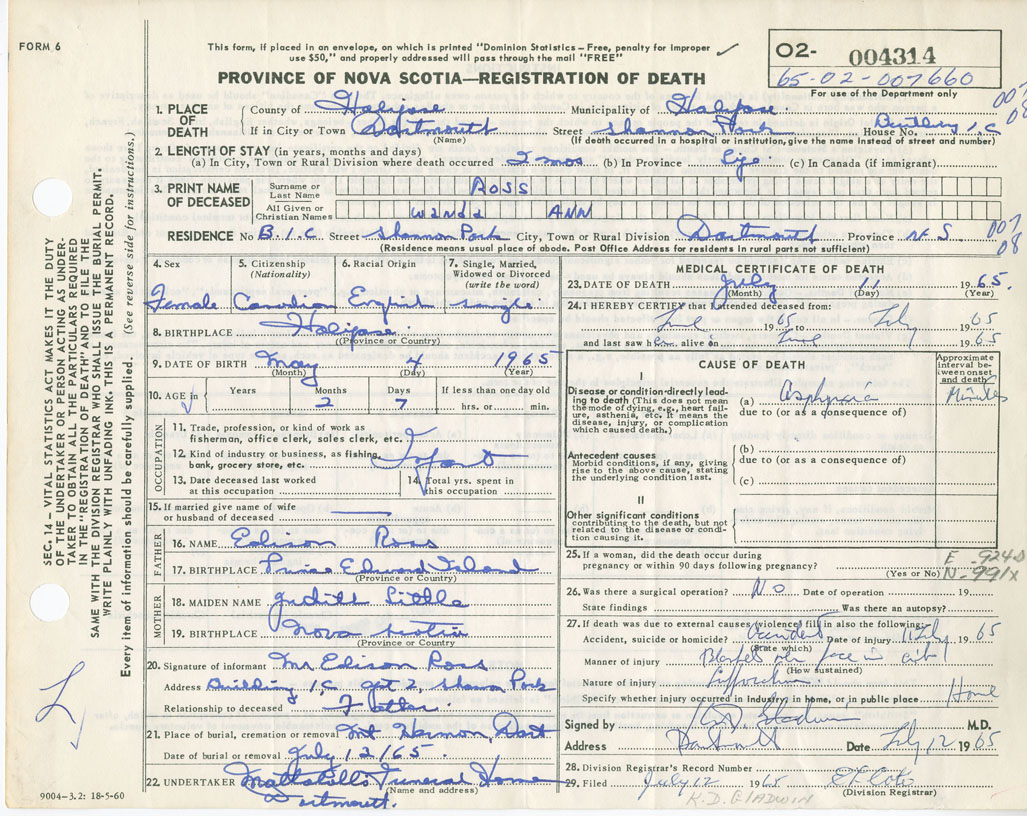 FORM 6
This form, if placed in an envelope, on which is printed "Dominion Statistics – Free, penalty for improper
use $50," and properly addressed will pass through the mail "FREE"
PROVINCE OF NOVA SCOTIA—REGISTRATION OF DEATH
O2- 004314
65-02-007660
For use of the Department only
007
08
1. PLACE OF DEATH
County of Halifax Municipality of Halifax
If in City or Town Dartmouth Street Shannon Park House No. Building 1, C
(Name) (If death occurred in a hospital or institution, give the name instead of street and number)
2. LENGTH OF STAY (in years, months and days)
(a) In City, Town or Rural Division where death occurred 2 mos (b) In Province Life (c) In Canada (if immigrant)
3. PRINT NAME OF DECEASED
Surname or Last Name ROSS
All Given or Christian Names WANDA ANN
RESIDENCE No B.I.C Street Shannon Park City, Town or Rural Division Dartmouth Province N.S.
007
08
(Residence means usual place of abode. Post Office Address for residents in rural parts not sufficient)
4. Sex
Female
5. Citizenship (Nationality)
Canadian
6. Racial Origin
English
7. Single, Married, Widowed or Divorced (write the word)
single
8. BIRTHPLACE Halifax
(Province or Country)
9. DATE OF BIRTH May 4 1965
(Month) (Day) (Year)
10. AGE in Years Months Days If less than one day old
2 7 hrs. or min.
OCCUPATION
11. Trade, profession, or kind of work as
fisherman, office clerk, sales clerk, etc.
12. Kind of industry or business, as fishing,
bank, grocery store, etc. Infant
13. Date deceased last worked
at this occupation
14. Total yrs. spent in
this occupation
15. If married give name of wife
or husband of deceased
FATHER
16. NAME Edison Ross
17. BIRTHPLACE Prince Edward Island
(Province or Country)
MOTHER
18. MAIDEN NAME Judith Little
19. BIRTHPLACE Nova Scotia
(Province or Country)
20. Signature of informant Mr Edison Ross
Address Building 1, C apt 2, Shannon Park
Relationship to deceased Father
21. Place of burial, cremation or removal Mt Hermon, Dart
Date of burial or removal July 12/65
22. UNDERTAKER Mattatall's Funeral Home
(Name and address)
Dartmouth.
9004-3.2: 18-5-60
MEDICAL CERTIFICATE OF DEATH
23. DATE OF DEATH July 11 1965.
(Month) (Day) (Year)
24. I HEREBY CERTIFY that I attended deceased from:
June 1965 to July 1965
and last saw her alive on June 1965
CAUSE OF DEATH
Approximate interval between onset and death
I
Disease or condition directly leading to death (This does not mean the mode of dying, e.g., heart failure, asthenia, etc. It means the disease, injury, or complication which caused death.)
(a) Asphyxia Minutes
due to (or as a consequence of)
Antecedent causes
Morbid conditions, if any, giving rise to the above cause, stating the underlying condition last.
(b)
due to (or as a consequence of)
(c)
II
Other significant conditions
contributing to the death, but not related to the disease or condition causing it.
25. If a woman, did the death occur during
pregnancy or within 90 days following pregnancy?
(Yes or No)
E-924.0
N-991X
26. Was there a surgical operation? No Date of operation 19
State findings Was there an autopsy?
27. If death was due to external causes (violence) fill in also the following:
Accident, suicide or homicide? Accident Date of injury 11 July 1965
(State which)
Manner of injury Blanket over face in crib
(How sustained)
Nature of injury Suffocation
Specify whether injury occurred in industry, in home, or in public place Home
Signed by K.D. Gladwin M.D.
Address Dartmouth Date July 12 1965
28. Division Registrar's Record Number
29. Filed July 12 1965
(Division Registrar)
K.D. GLADWIN
SEC. 14 – VITAL STATISTICS ACT MAKES IT THE DUTY
OF THE UNDERTAKER OR PERSON ACTING AS UNDER-
TAKER TO OBTAIN ALL THE PARTICULARS REQUIRED
IN THE "REGISTRATION OF DEATH" AND TO FILE THE
SAME WITH THE DIVISION REGISTRAR WHO SHALL ISSUE THE BURIAL PERMIT.
WRITE PLAINLY WITH UNFADING INK. THIS IS A PERMANENT RECORD.
Every item of information should be carefully supplied. (See reverse side for instructions.)